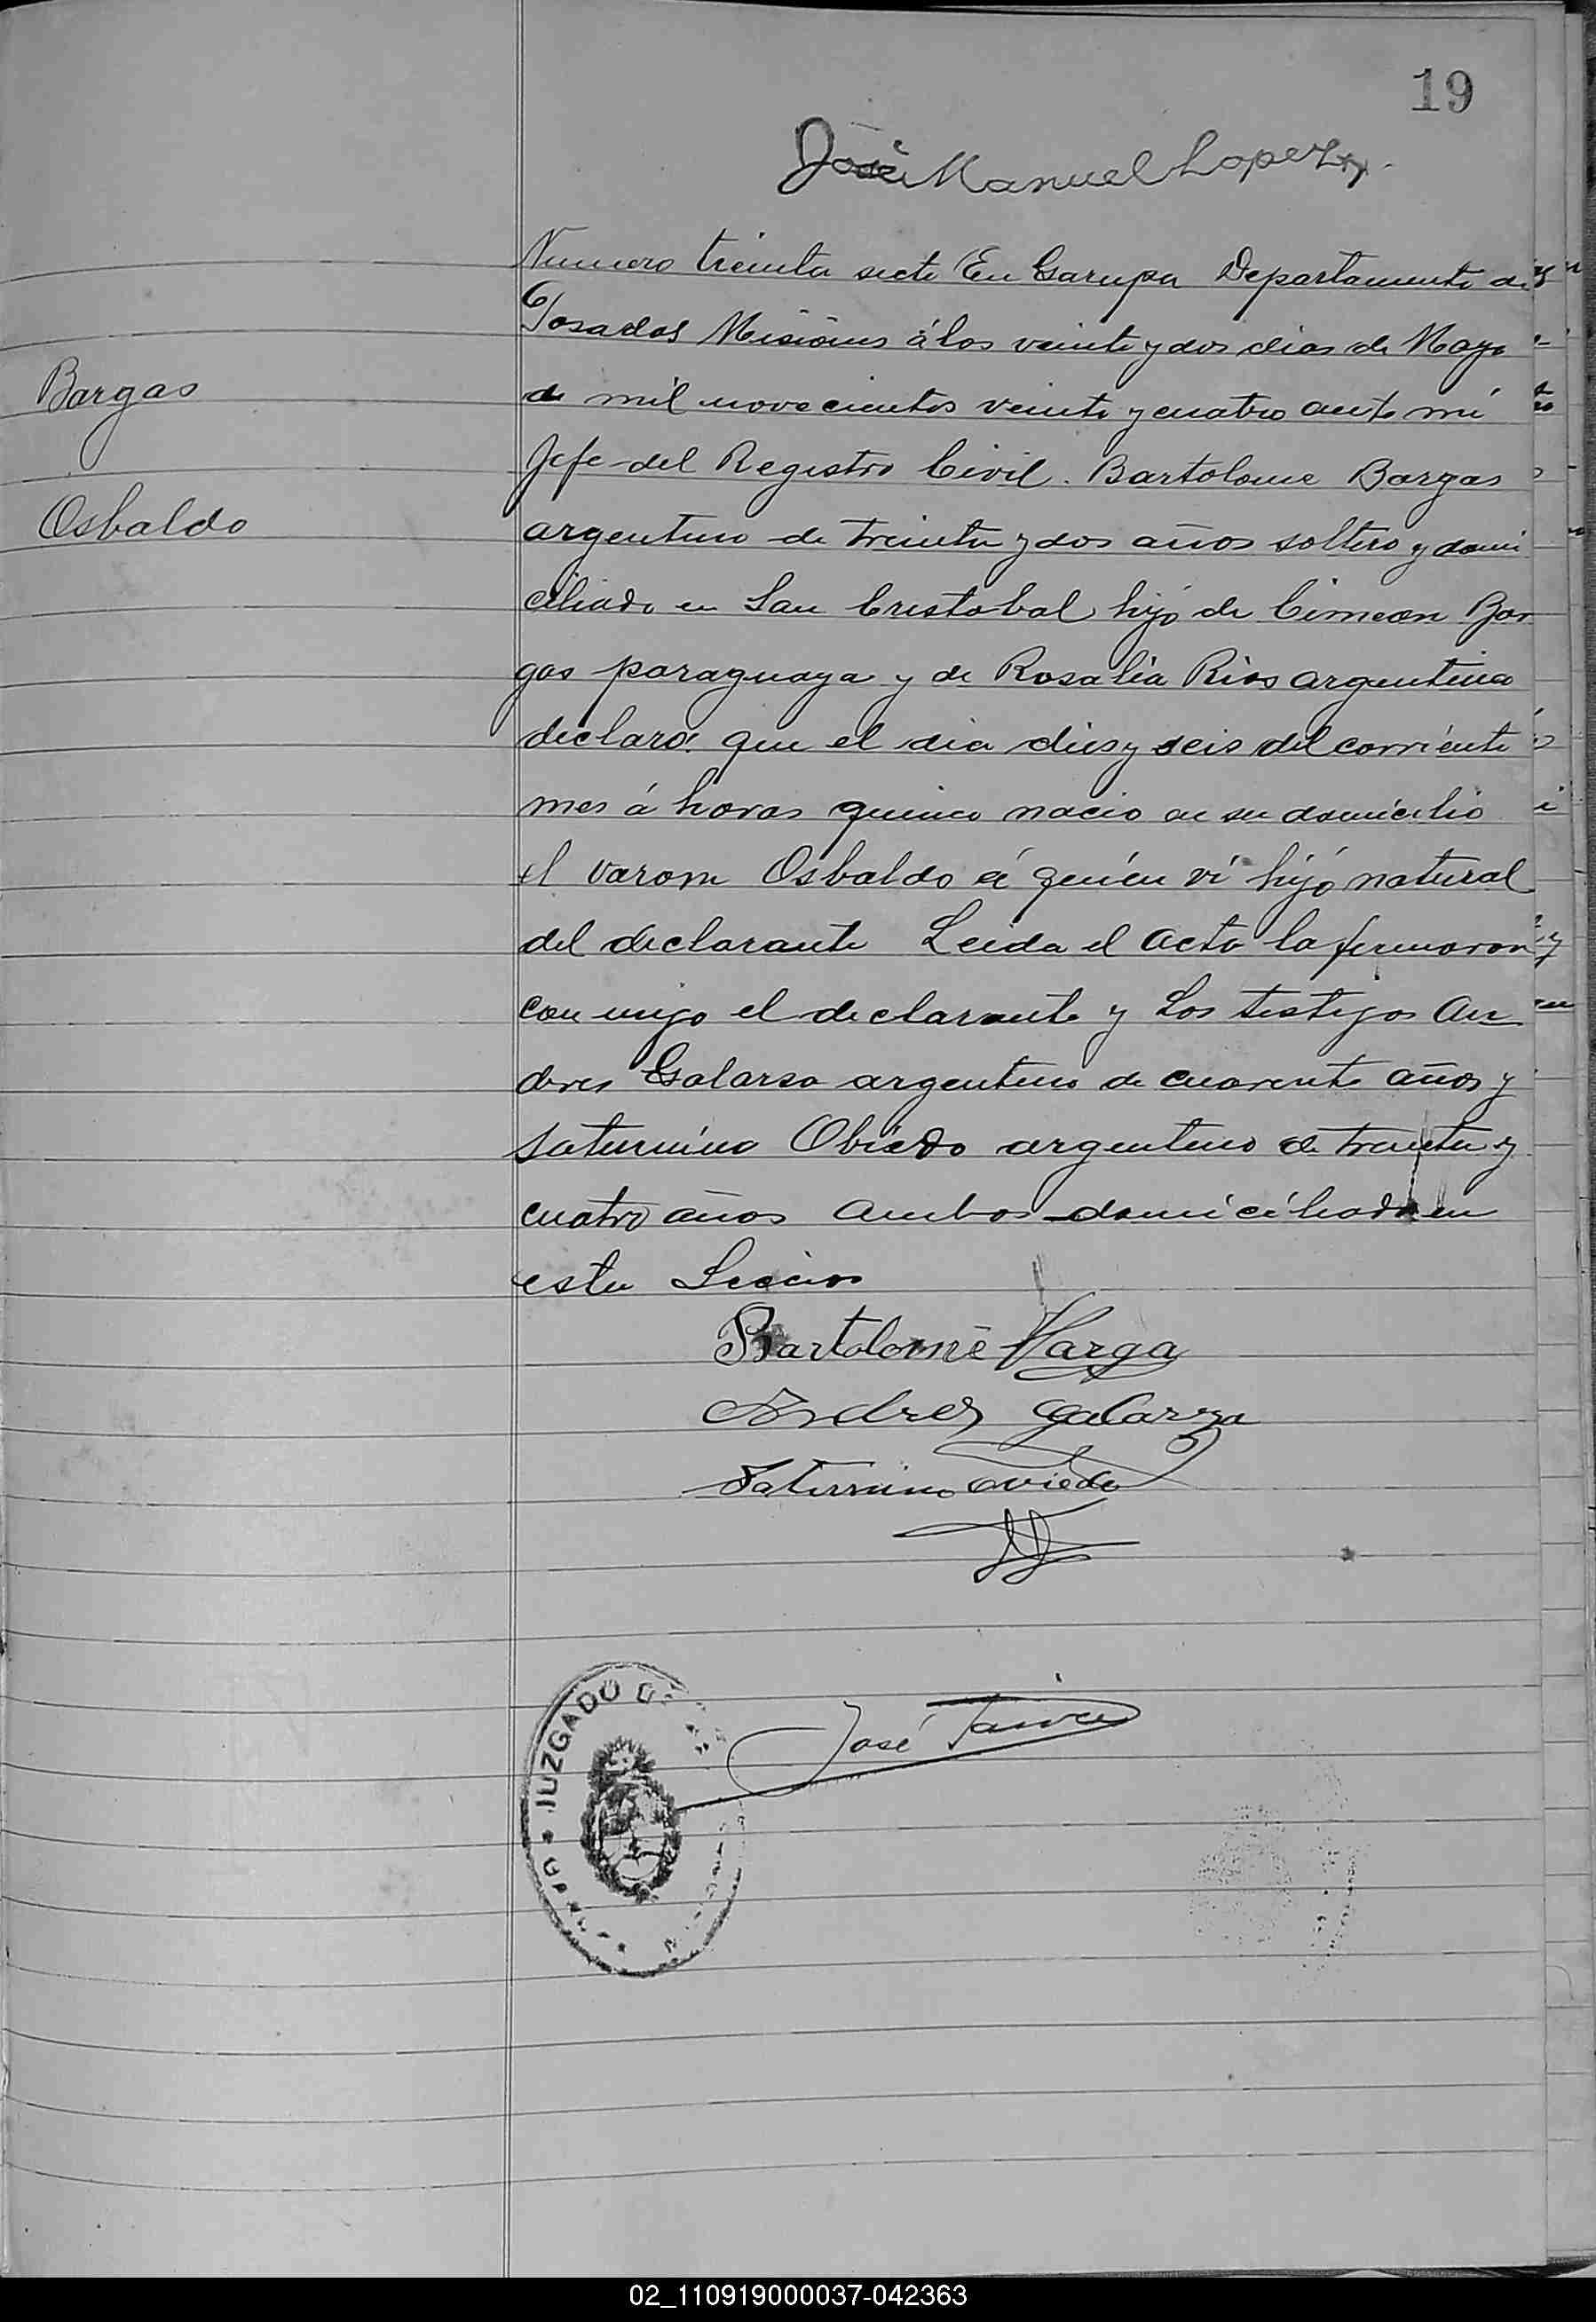 19
José Manuel Lopez
Numero treinta siete En Garupa Departamento de
Posadas Misiones á los veinte y dos dias de Mayo
de mil novecientos veinte y cuatro ante mi
Jefe del Registro Civil. Bartolome Bargas
Bargas
argentino de treinta y dos años soltero y domi
Osbaldo
ciliado en San Cristobal hijo de Cimeon Bar
gas paraguaya y de Rosalia Rios argentina
declaró: que el dia dies y seis del corriente
mes á horas quince nacio en su domicilio
el varom Osbaldo á quien vi hijo natural
del declarante Leida el acta la firmaron
con migo el declarante y Los testigos An
dres Galarsa argentino de cuarenta años y
Saturnino Obiedo argentino de treinta y
cuatro años ambos domiciliados en
esta Seccion
Bartolomé Varga
Andres Galarza
Saturnino Oviedo
José
JUZGADO D
02_110919000037-042363